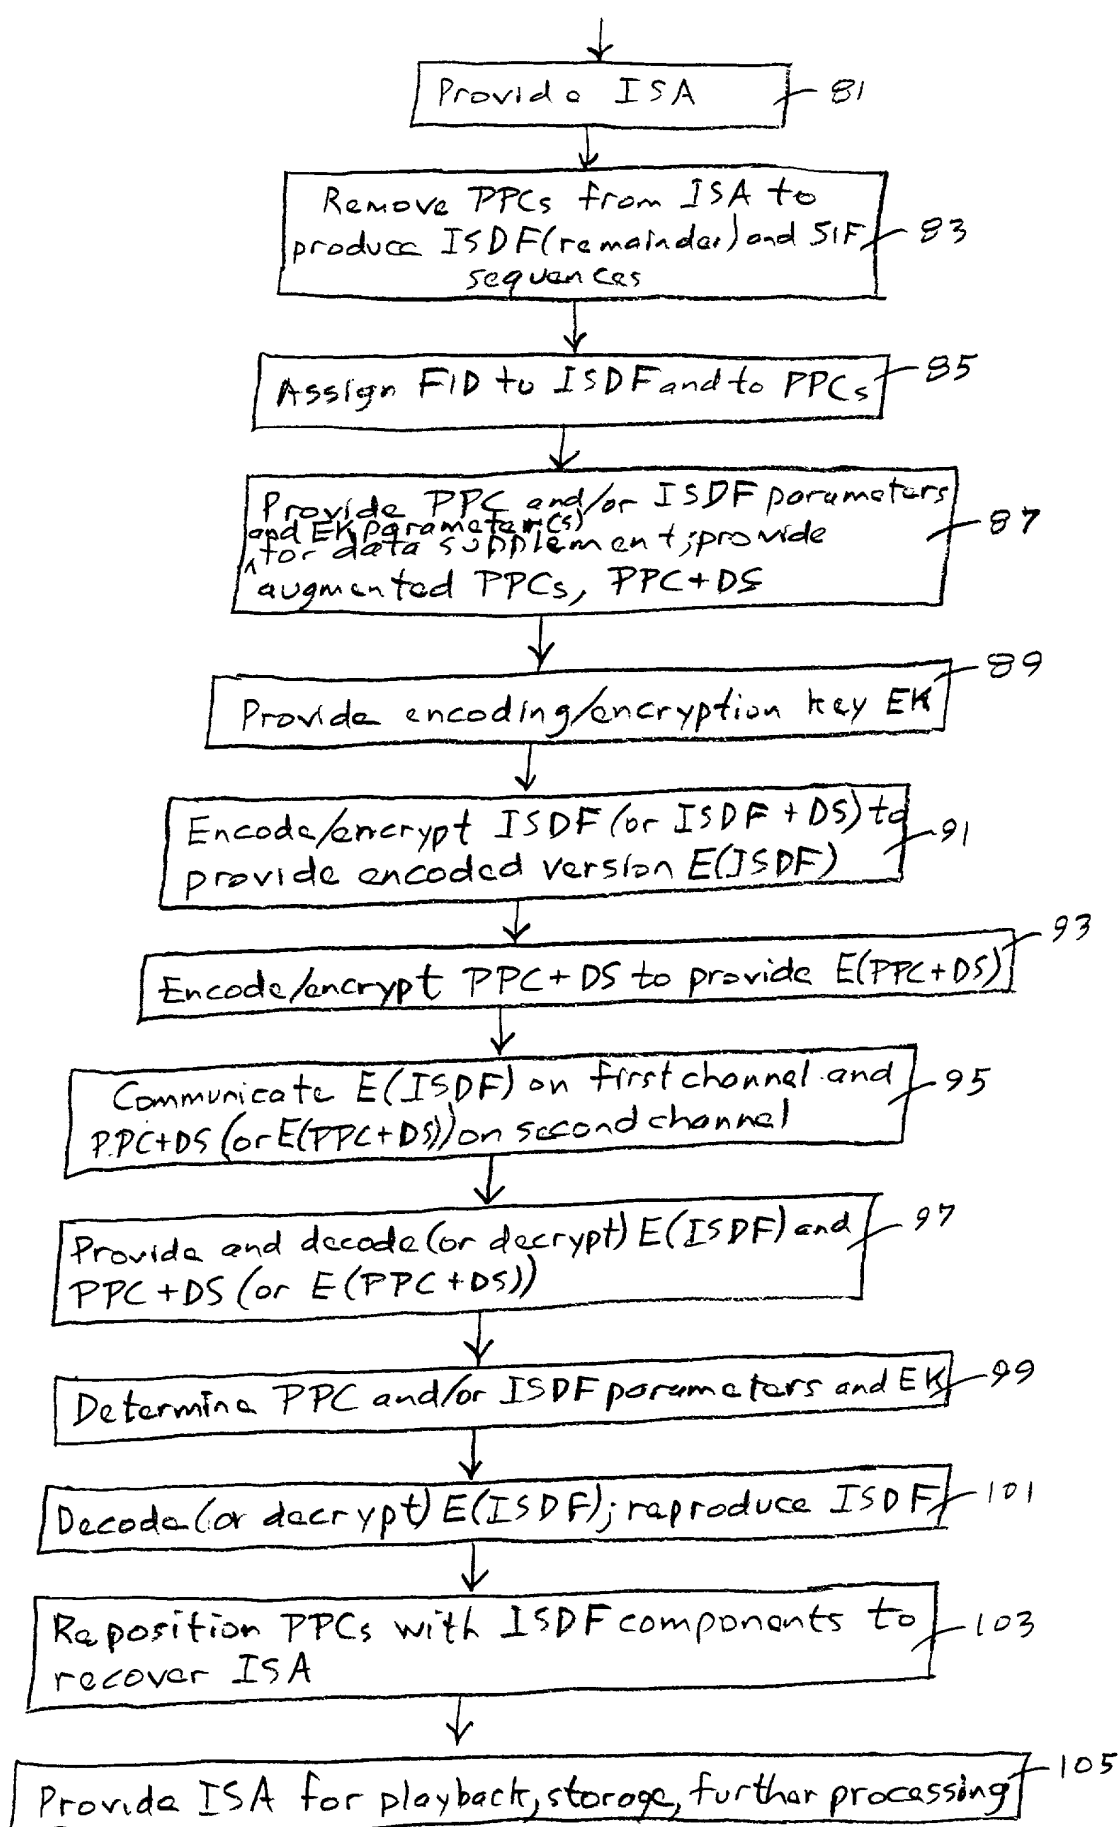 Provide ISA 81
Remove PPCs from ISA to
produce ISDF (remainder) and SIF 83
sequences
Assign FID to ISDF and to PPCs 85
Provide PPC and/or ISDF parameters
and EK parameter(s)
^ for data supplement; provide 87
augmented PPCs, PPC+DS
Provide encoding/encryption key EK 89
Encode/encrypt ISDF (or ISDF + DS) to
provide encoded version E(ISDF) 91
Encode/encrypt PPC+DS to provide E(PPC+DS) 93
Communicate E(ISDF) on first channel and 95
PPC+DS (or E(PPC+DS)) on second channel
Provide and decode (or decrypt) E(ISDF) and 97
PPC+DS (or E(PPC+DS))
Determine PPC and/or ISDF parameters and EK 99
Decode (or decrypt) E(ISDF); reproduce ISDF 101
Reposition PPCs with ISDF components to 103
recover ISA
Provide ISA for playback, storage, further processing 105